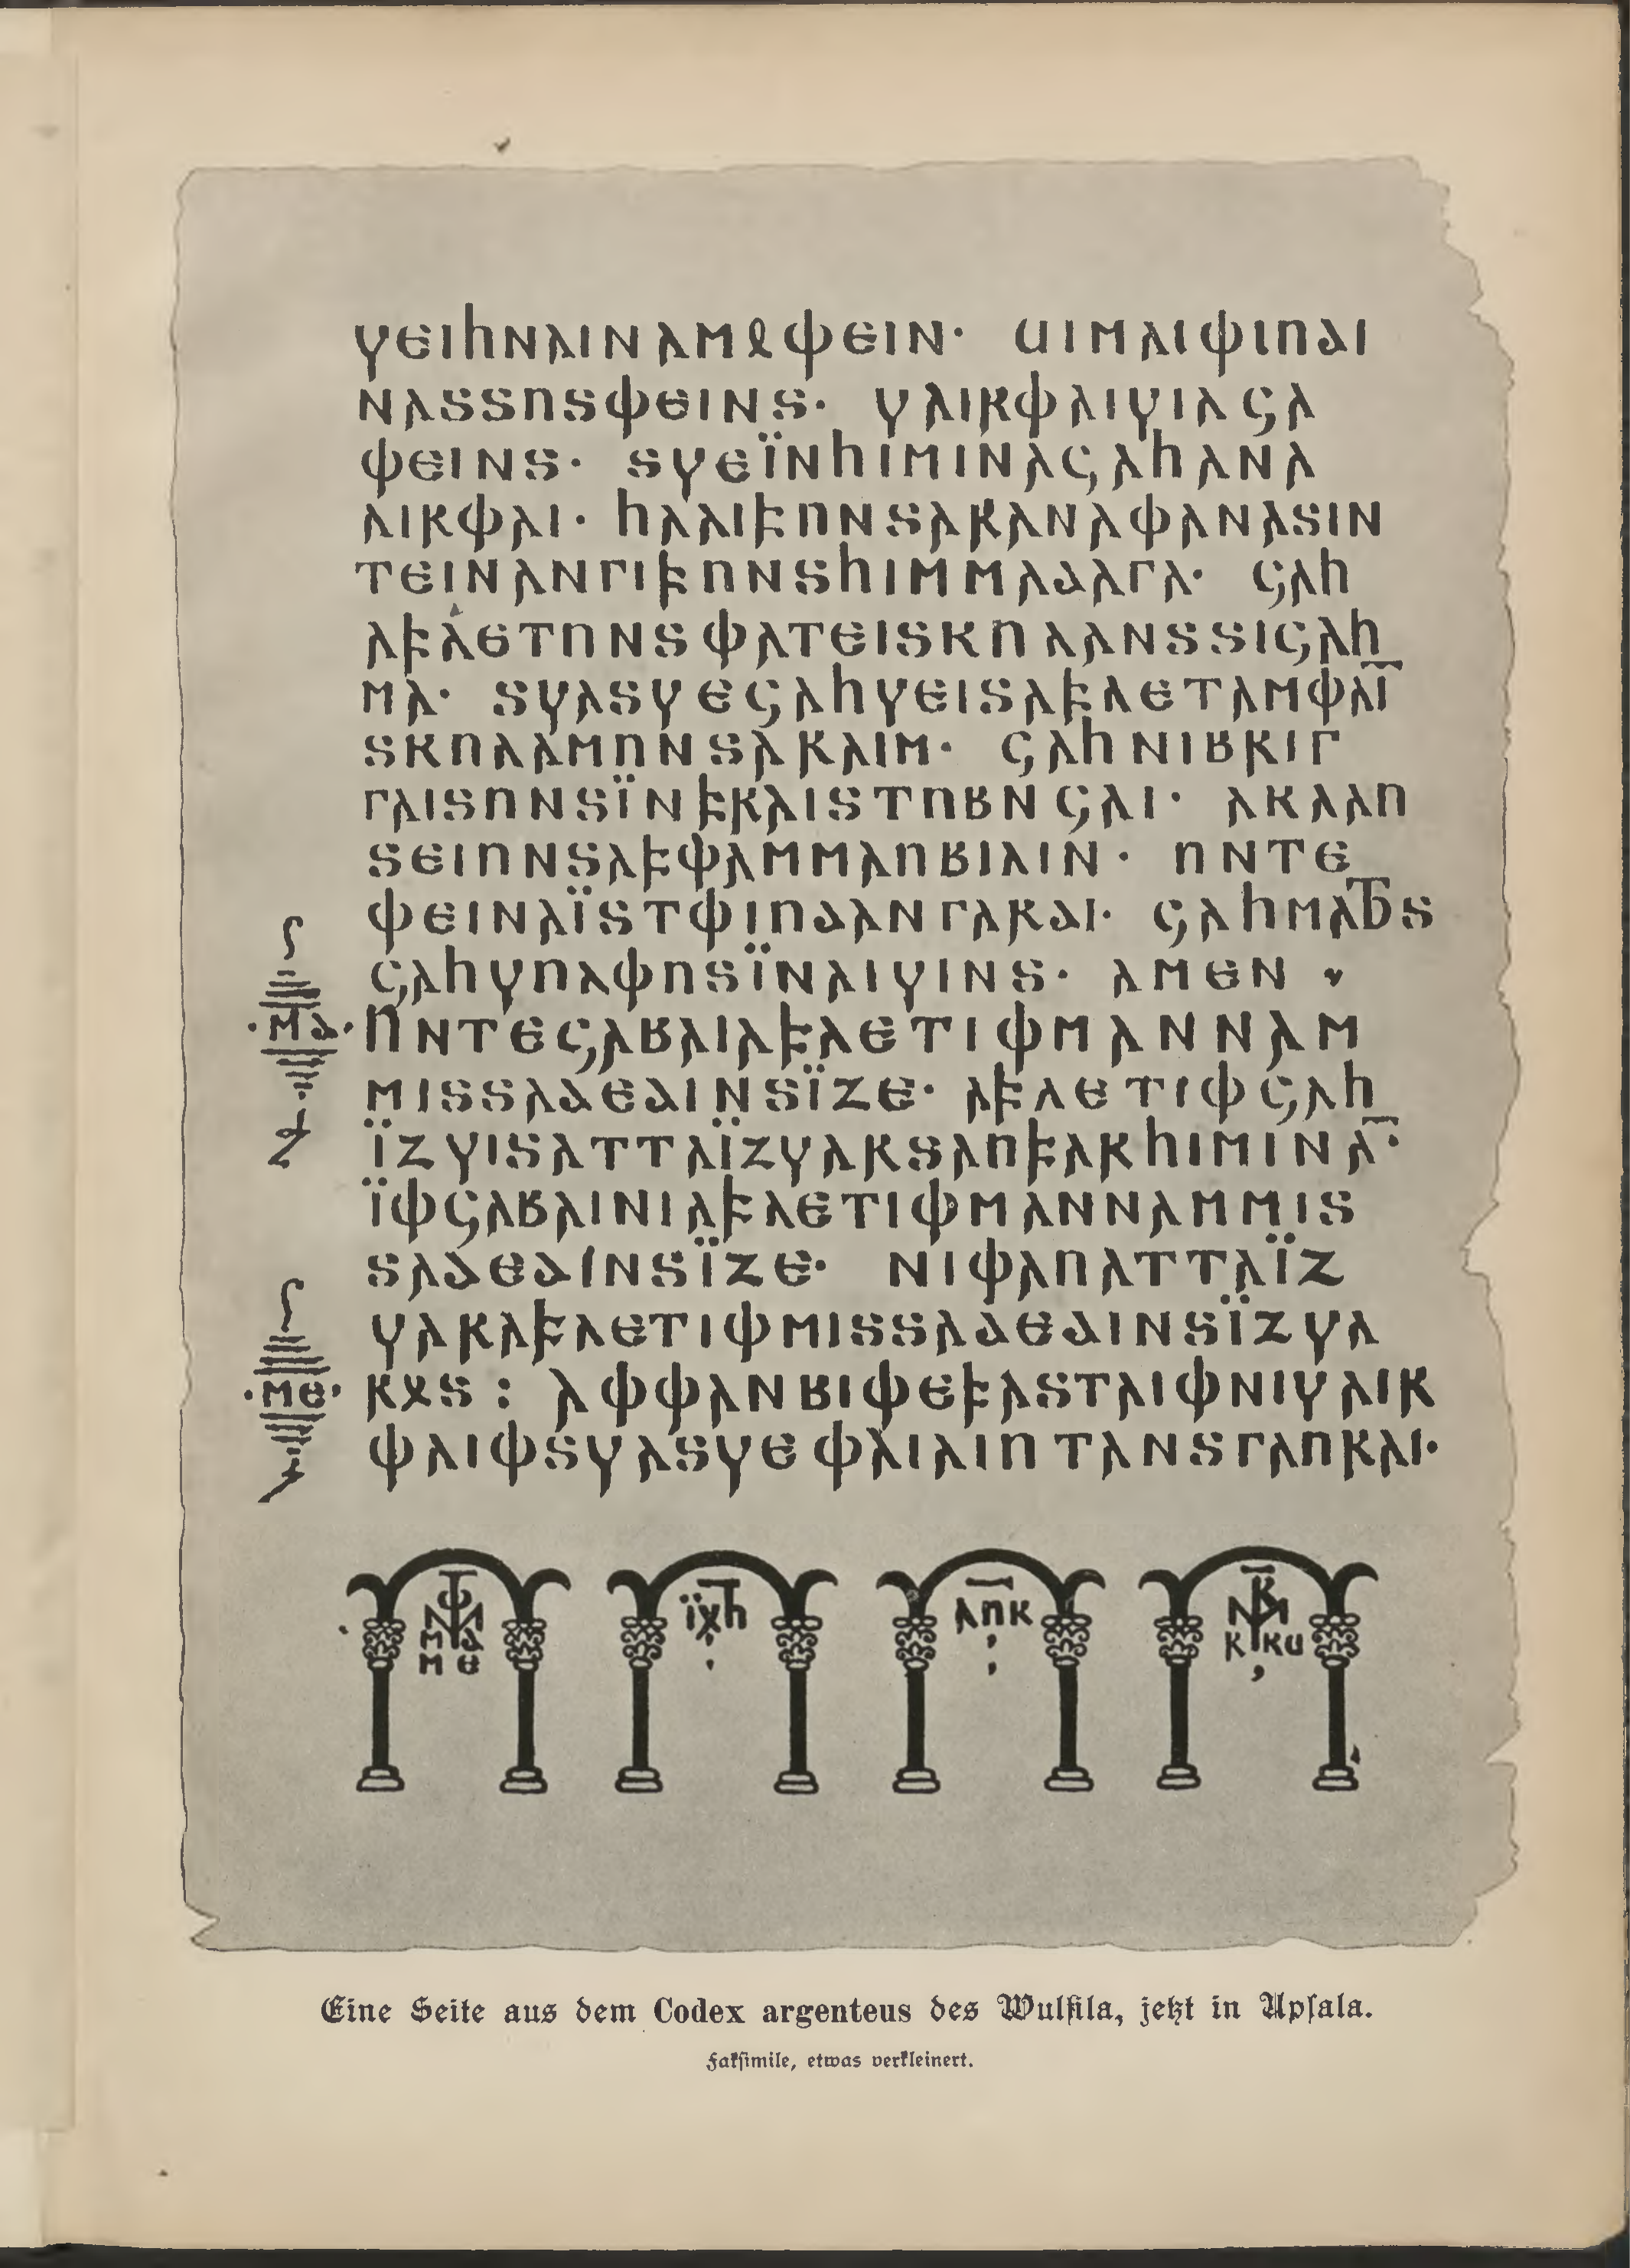 𐍅𐌴𐌹𐌷𐌽𐌰𐌹𐌽𐌰𐌼𐍉𐌸𐌴𐌹𐌽· 𐌵𐌹𐌼𐌰𐌹𐌸𐌹𐌿𐌳𐌹
𐌽𐌰𐍃𐍃𐌿𐍃𐌸𐌴𐌹𐌽𐍃· 𐍅𐌰𐌹𐍂𐌸𐌰𐌹𐍅𐌹𐌻𐌾𐌰
𐌸𐌴𐌹𐌽𐍃· 𐍃𐍅𐌴𐌹̈𐌽𐌷𐌹𐌼𐌹𐌽𐌰𐌾𐌰𐌷𐌰𐌽𐌰
𐌰𐌹𐍂𐌸𐌰𐌹· 𐌷𐌻𐌰𐌹𐍆𐌿𐌽𐍃𐌰𐍂𐌰𐌽𐌰𐌸𐌰𐌽𐌰𐍃𐌹𐌽
𐍄𐌴𐌹𐌽𐌰𐌽𐌲𐌹𐍆𐌿𐌽𐍃𐌷𐌹𐌼𐌼𐌰𐌳𐌰𐌲𐌰· 𐌾𐌰𐌷
𐌰𐍆𐌻𐌴𐍄𐌿𐌽𐍃𐌸𐌰𐍄𐌴𐌹𐍃𐌺𐌿𐌻𐌰𐌽𐍃𐍃𐌹𐌾𐌰𐌷
𐌼𐌰· 𐍃𐍅𐌰𐍃𐍅𐌴𐌾𐌰𐌷𐍅𐌴𐌹𐍃𐌰𐍆𐌻𐌴𐍄𐌰𐌼𐌸𐌰𐌹̅
𐍃𐌺𐌿𐌻𐌰𐌼𐌿𐌽𐍃𐌰𐍂𐌰𐌹𐌼· 𐌾𐌰𐌷𐌽𐌹𐌱𐍂𐌹𐌲
𐌲𐌰𐌹𐍃𐌿𐌽𐍃𐌹̈𐌽𐍆𐍂𐌰𐌹𐍃𐍄𐌿𐌱𐌽𐌾𐌰𐌹· 𐌰𐌺𐌻𐌰𐌿
𐍃𐌴𐌹𐌿𐌽𐍃𐌰𐍆𐌸𐌰𐌼𐌼𐌰𐌿𐌱𐌹𐌻𐌹𐌽· 𐌿𐌽𐍄𐌴
𐌸𐌴𐌹𐌽𐌰𐌹̈𐍃𐍄𐌸𐌹𐌿𐌳𐌰𐌽𐌲𐌰𐍂𐌳𐌹· 𐌾𐌰𐌷𐌼𐌰𐌷𐍄𐍃
𐌾𐌰𐌷𐍅𐌿𐌻𐌸𐌿𐍃𐌹̈𐌽𐌰𐌹𐍅𐌹𐌽𐍃· 𐌰𐌼𐌴𐌽
·𐌼𐌳· 𐌿𐌽𐍄𐌴𐌾𐌰𐌱𐌰𐌹𐌰𐍆𐌻𐌴𐍄𐌹𐌸𐌼𐌰𐌽𐌽𐌰𐌼
𐌼𐌹𐍃𐍃𐌰𐌳𐌴𐌳𐌹𐌽𐍃𐌹̈𐌶𐌴· 𐌰𐍆𐌻𐌴𐍄𐌹𐌸𐌾𐌰𐌷
𐌹̈𐌶𐍅𐌹𐍃𐌰𐍄𐍄𐌰𐌹̈𐌶𐍅𐌰𐍂𐍃𐌰𐌿𐍆𐌰𐍂𐌷𐌹𐌼𐌹𐌽𐌰̅·
𐌹̈𐌸𐌾𐌰𐌱𐌰𐌹𐌽𐌹𐌰𐍆𐌻𐌴𐍄𐌹𐌸𐌼𐌰𐌽𐌽𐌰𐌼𐌼𐌹𐍃
𐍃𐌰𐌳𐌴𐌳𐌹𐌽𐍃𐌹̈𐌶𐌴· 𐌽𐌹𐌸𐌰𐌿𐌰𐍄𐍄𐌰𐌹̈𐌶
𐍅𐌰𐍂𐌰𐍆𐌻𐌴𐍄𐌹𐌸𐌼𐌹𐍃𐍃𐌰𐌳𐌴𐌳𐌹𐌽𐍃𐌹̈𐌶𐍅𐌰
·𐌼𐌴· 𐍂𐍉𐍃: 𐌰𐌸𐌸𐌰𐌽𐌱𐌹𐌸𐌴𐍆𐌰𐍃𐍄𐌰𐌹𐌸𐌽𐌹𐍅𐌰𐌹𐍂
𐌸𐌰𐌹𐌸𐍃𐍅𐌰𐍃𐍅𐌴𐌸𐌰𐌹𐌻𐌹𐌿𐍄𐌰𐌽𐍃𐌲𐌰𐌿𐍂𐌰𐌹·
𐌼𐌳
𐌼𐌴
Eine Seite aus dem Codex argenteus des Wulfila, jetzt in Upsala.
Faksimile, etwas verkleinert.